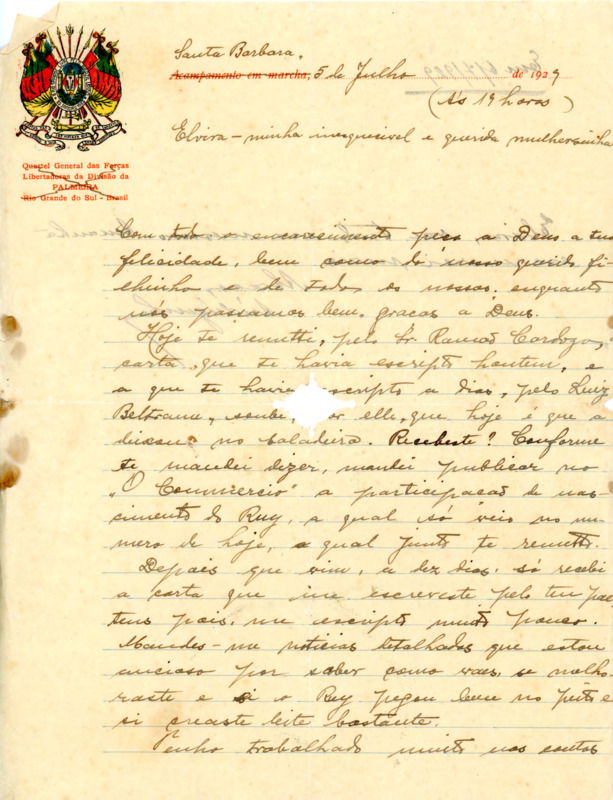 Santa Barbara,
Acampamento em marcha, 5 de Julho de 1929
(Ás 19 horas)
Elvira – minha inesquecivel e querida mulhersinha
Quartel General das Forças
Libertadoras da Divisão da
PALMEIRA
Rio Grande do Sul - Brasil
Com todo o encarecimento peço a Deus a tua
felicidade, bem como do nosso querido fi-
lhinho e de todos os nossos, enquanto
nós passamos bem, graças a Deus.
Hoje te remetti, pelo Sr. Ramão Cardozo, a
carta que te havia escripto hontem, e
a que te havia escripto a dias, pelo Luiz
Beltrame, soube, por elle, que hoje é que a
deixou no Saladeiro. Recebeste? Conforme
te mandei dizer, mandei publicar no
"O Commercio" a participação de nas-
cimento do Ruy, a qual só veio no nu-
mero de hoje, a qual junto te remetto.
Depois que vim, a dez dias, só recebi
a carta que me escreveste pelo teu pae
teus pais, me escripto muito pouco.
Mandes-me noticias detalhadas que estou
ancioso por saber como vaes, se melho-
raste e si o Ruy pegou bem no peito e
si creaste leite bastante.
Tenho trabalhado muito nas contas